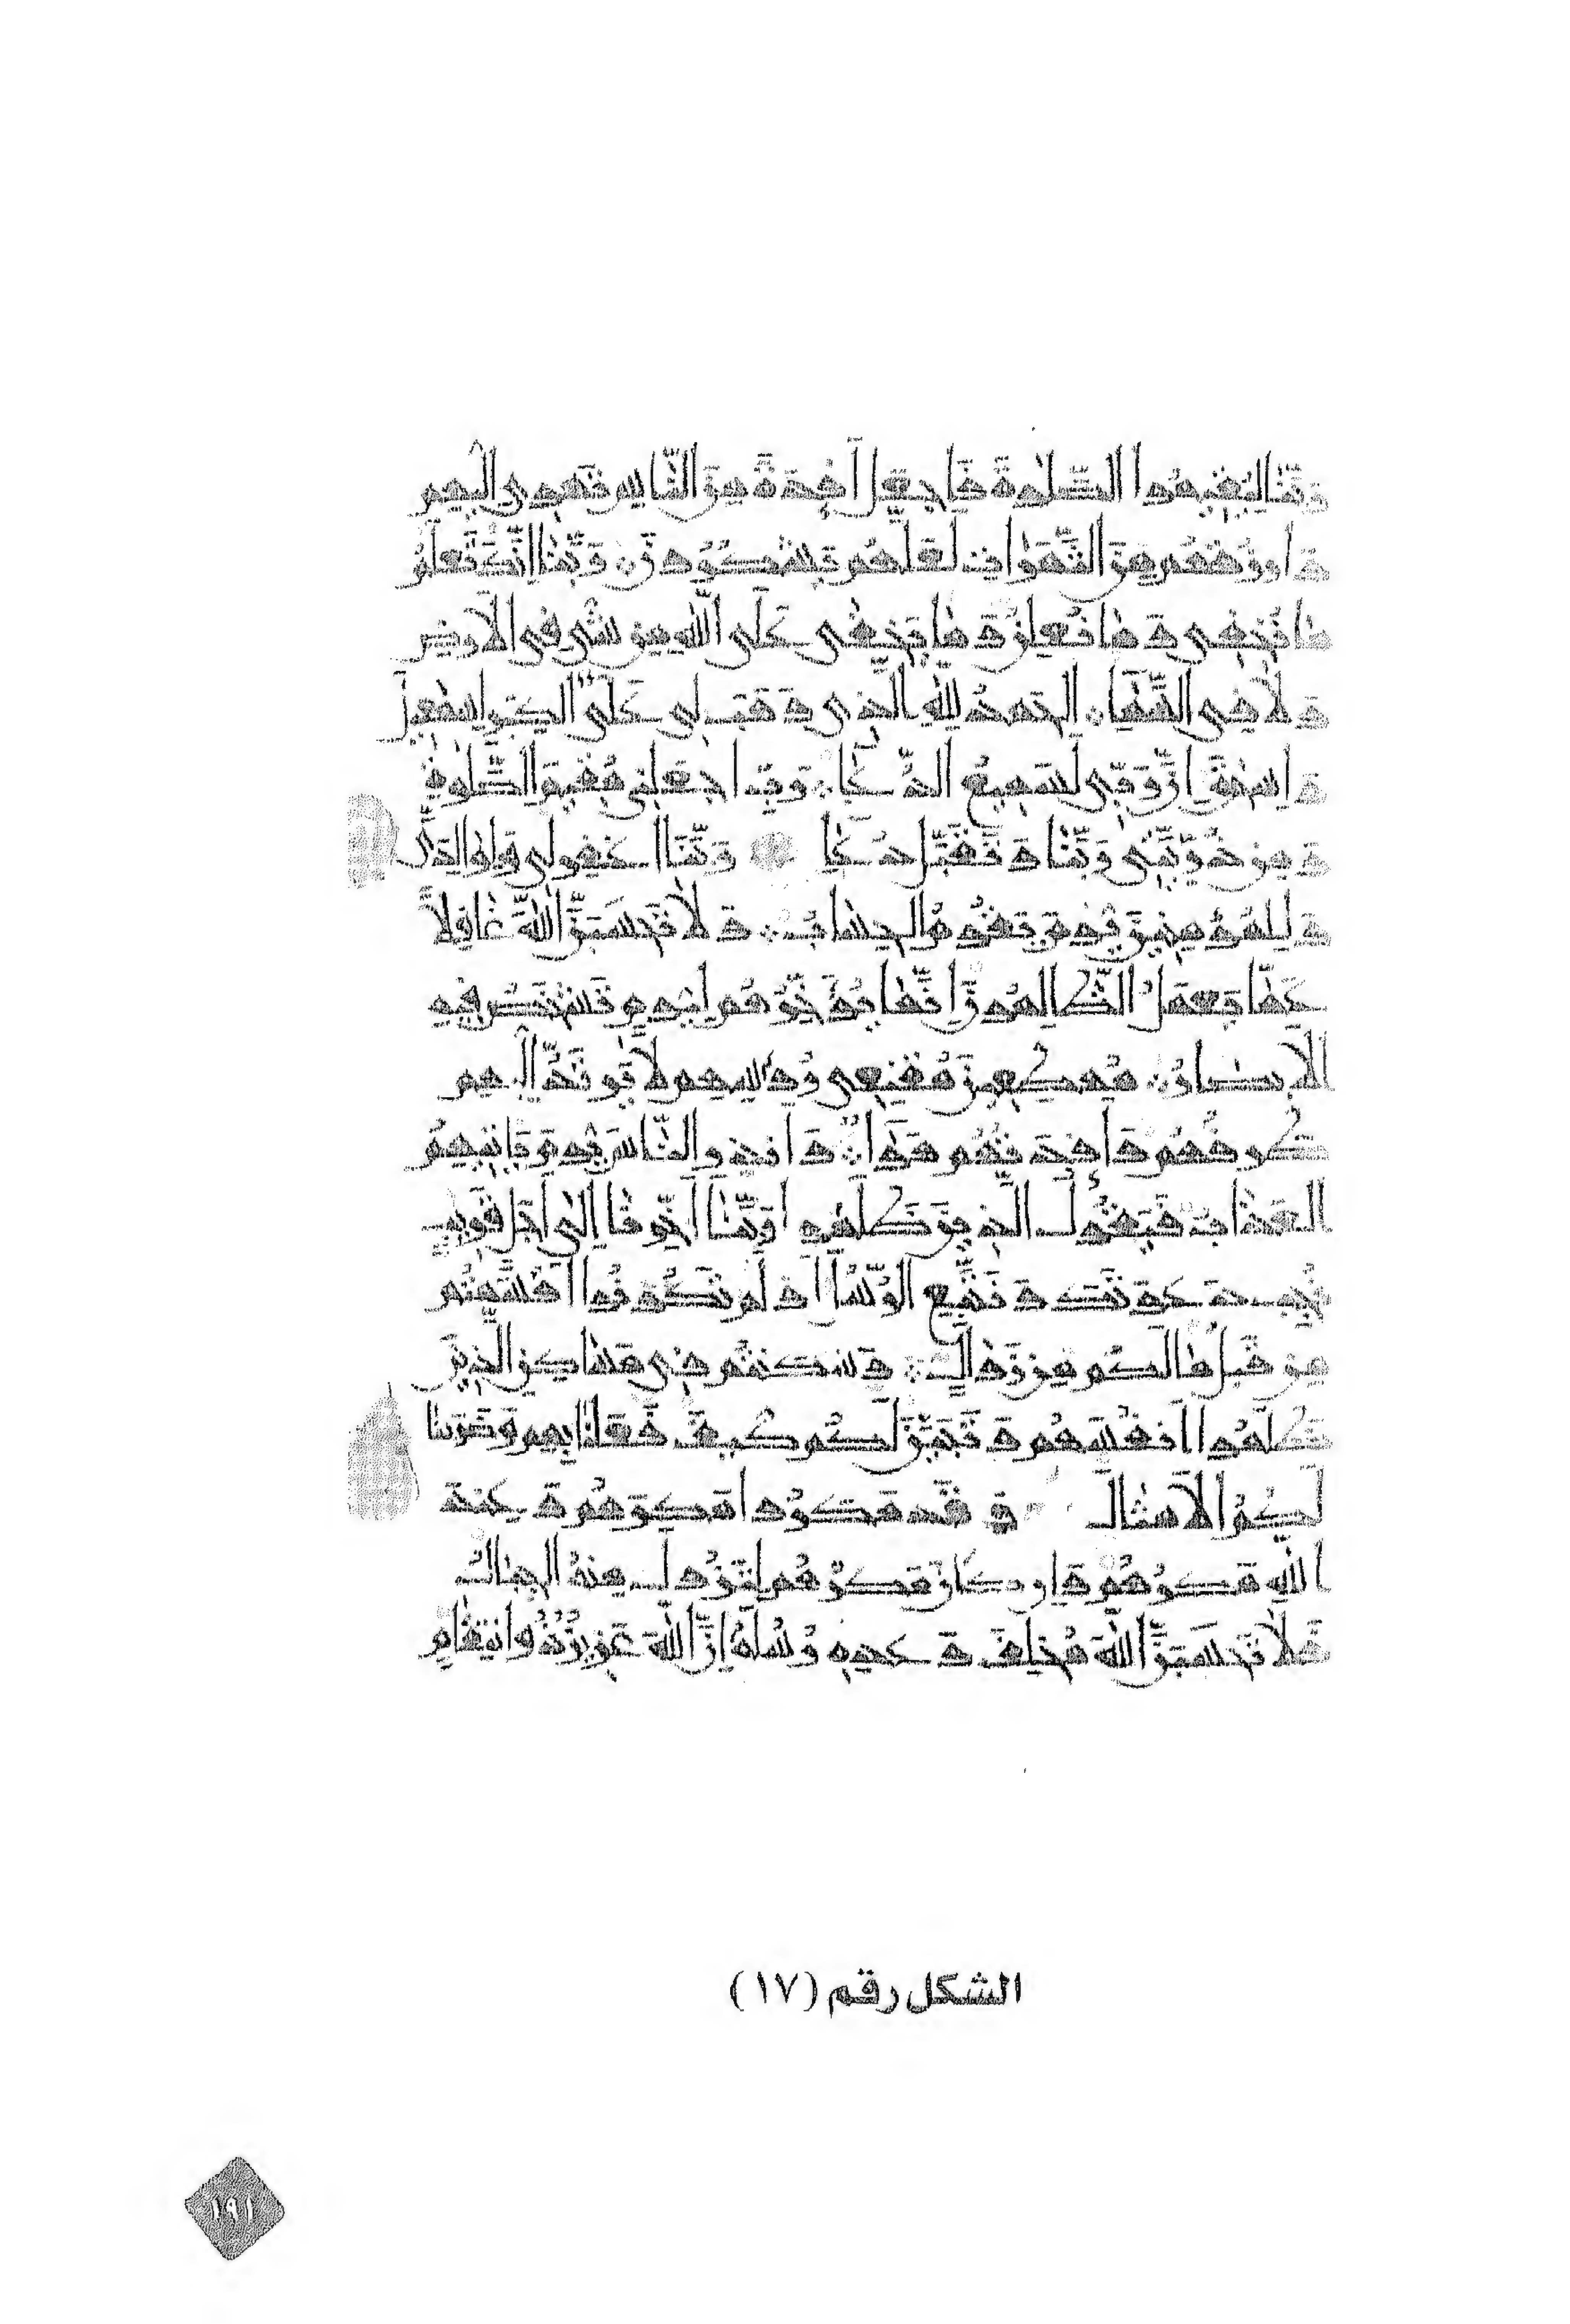 رَبَّنَا لِيُقِيمُوا الصَّلٰوةَ فَاجْعَلْ اَفْـِٔدَةً مِنَ النَّاسِ تَهْوِى اِلَيْهِم
وَارْزُقْهُم مِنَ الثَّمَرَاتِ لَعَلَّهُم يَشْكُرُونَ رَبَّنَا اِنَّكَ تَعْلَمُ
مَا نُخْفِى وَمَا نُعْلِنُ وَمَا يَخْفٰى عَلَى اللّٰهِ مِن شَىْءٍ فِى الْاَرْضِ
وَلَا فِى السَّمَاءِ اَلْحَمْدُ لِلّٰهِ الَّذِى وَهَبَ لِى عَلَى الْكِبَرِ اِسْمٰعِيلَ
وَاِسْحٰقَ اِنَّ رَبِّى لَسَمِيعُ الدُّعَاءِ رَبِّ اجْعَلْنِى مُقِيمَ الصَّلٰوةِ
وَمِن ذُرِّيَّتِى رَبَّنَا وَتَقَبَّلْ دُعَاءِ رَبَّنَا اغْفِر لِى وَلِوَالِدَىَّ
وَلِلْمُؤْمِنِينَ يَوْمَ يَقُومُ الْحِسَابُ وَلَا تَحْسَبَنَّ اللّٰهَ غَافِلًا
عَمَّا يَعْمَلُ الظَّالِمُونَ اِنَّمَا يُؤَخِّرُهُم لِيَوْمٍ تَشْخَصُ فِيهِ
الْاَبْصَارُ مُهْطِعِينَ مُقْنِعِى رُءُوسِهِم لَا يَرْتَدُّ اِلَيْهِم
طَرْفُهُم وَاَفْـِٔدَتُهُم هَوَاءٌ وَاَنْذِرِ النَّاسَ يَوْمَ يَاْتِيهِمُ
الْعَذَابُ فَيَقُولُ الَّذِينَ ظَلَمُوا رَبَّنَا اَخِّرْنَا اِلٰى اَجَلٍ قَرِيبٍ
نُجِبْ دَعْوَتَكَ وَنَتَّبِعِ الرُّسُلَ اَوَلَم تَكُونُوا اَقْسَمْتُم
مِن قَبْلُ مَا لَكُم مِن زَوَالٍ وَسَكَنْتُم فِى مَسَاكِنِ الَّذِينَ
ظَلَمُوا اَنْفُسَهُم وَتَبَيَّنَ لَكُم كَيْفَ فَعَلْنَا بِهِم وَضَرَبْنَا
لَكُمُ الْاَمْثَالَ وَقَد مَكَرُوا مَكْرَهُم وَعِنْدَ
اللّٰهِ مَكْرُهُم وَاِن كَانَ مَكْرُهُم لِتَزُولَ مِنْهُ الْجِبَالُ
فَلَا تَحْسَبَنَّ اللّٰهَ مُخْلِفَ وَعْدِهِ رُسُلَهُ اِنَّ اللّٰهَ عَزِيزٌ ذُو انْتِقَامٍ
الشكل رقم (١٧)
١٩١